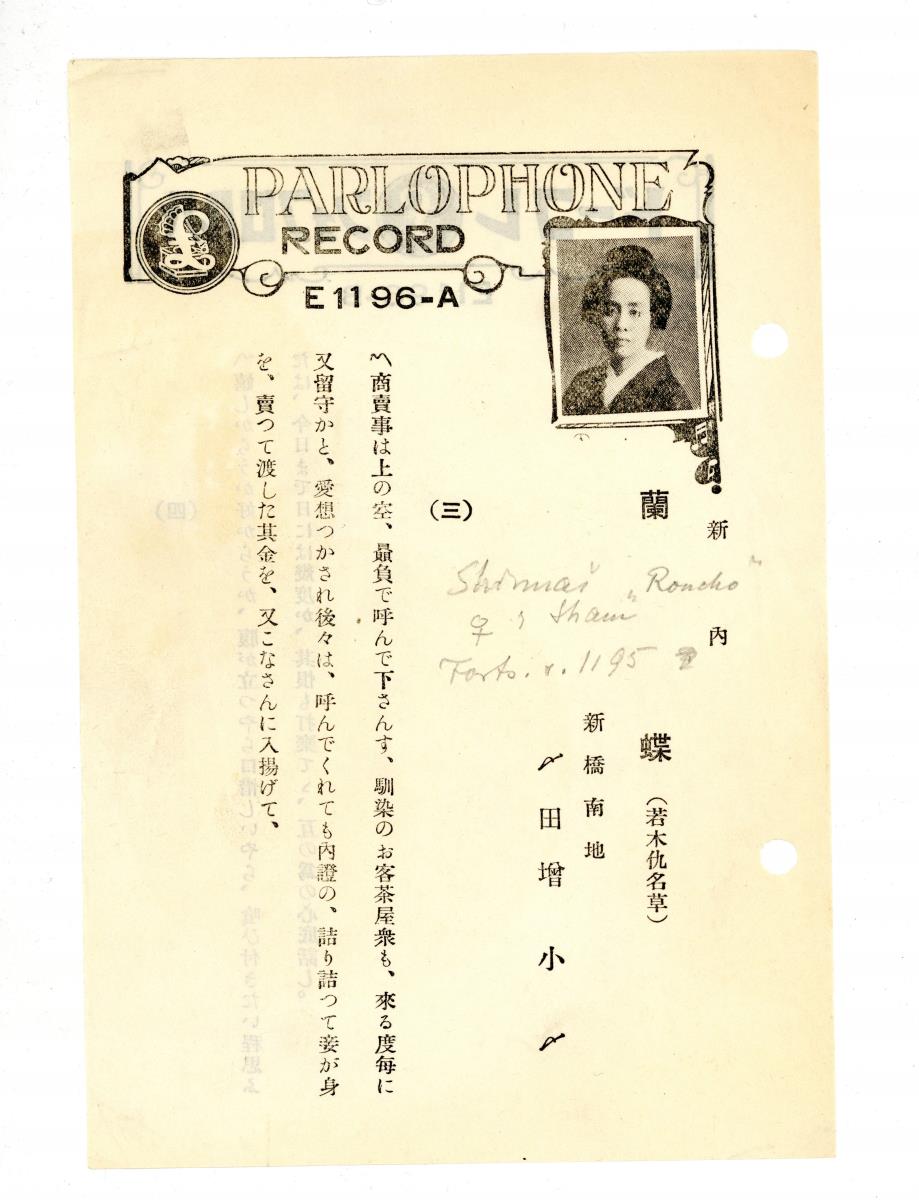 PARLOPHONE
RECORD
E1196-A
新内
蘭蝶(若木仇名草)
新橋南地
〆田增小〆
Shinnai "Rancho"
Forts. v. 1195
(三)
〽商賣事は上の空、贔負で呼んで下さんす、馴染のお客茶屋衆も、來る度每に
又留守かと、愛想つかされ後々は、呼んでくれても內證の、詰り詰つて妾が身
を、賣つて渡した其金を、又こなさんに入揚げて、